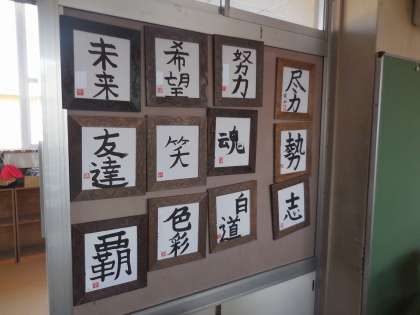 未来
希望
努力
尽力
友達
笑
魂
勢
覇
色彩
自道
志